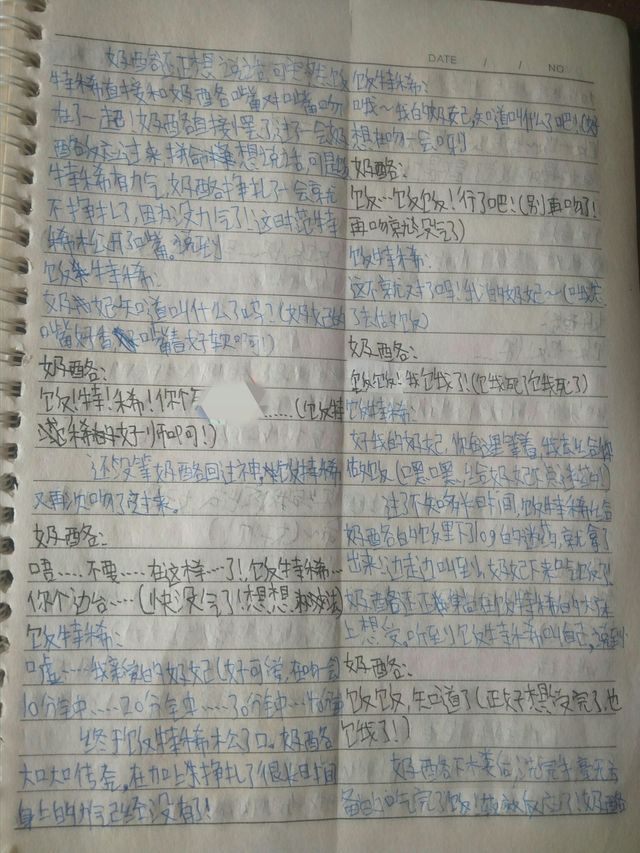 DATE / / NO
奶酪还正想说话可突然饭
特稀直接和奶酪嘴对嘴吻
在了一起!奶酪直接懵了过了一会奶
酪反应过来拼命想说话,可是
特稀有力气,奶酪挣扎了一会就
不挣扎了,因为没力气了!这时范特
稀松开了嘴。说到
饭特稀:
奶妃知道叫什么了吗?(奶妃的
嘴好香 嘴唇好软啊!)
奶酪:
饭!特!稀!你个 ......(饭特
稀的
还没等奶酪回过神,饭特稀
又再次吻了过来。
奶酪:
唔……不要……在这样…了!饭特稀…
你个边台……(快没气了!想想
饭特稀:
嘘……我亲爱的奶妃(好可爱,在吻会
10分钟中……20分钟中……30分钟中…40分钟
终于饭特稀松了口。奶酪
大口大口传奔,在加上挣扎了很长时间
身上的力气已经没有了!
饭特稀:
哦~我的奶妃知道叫什么了吧!(好
想在吻一会呀!)
奶酪:
饭…饭饭!行了吧!(别再吻了!
再吻就没气了)
饭特稀:
这不就对了吗!我的奶妃~(
了去估饭)
奶酪:
饭饭!我包我了!(包我死了包我死了)
饭特稀:
好我的奶妃,你在这里等着,我去给你
做饭(嘿嘿,给奶妃下点
过了不知多长时间,饭特稀在给
奶酪的饭里下了10g的迷药,就拿了
出来,边走边叫到,奶妃下来吃饭了!
奶酪还正躺在饭特稀的大床
上想受。听到饭特稀叫自己,说到
奶酪:
饭饭,知道了(正好想受完了,也
包我了!)
奶酪下来蒌估,洗完手毫无方
备的吃完了饭!放效反应了,奶酪